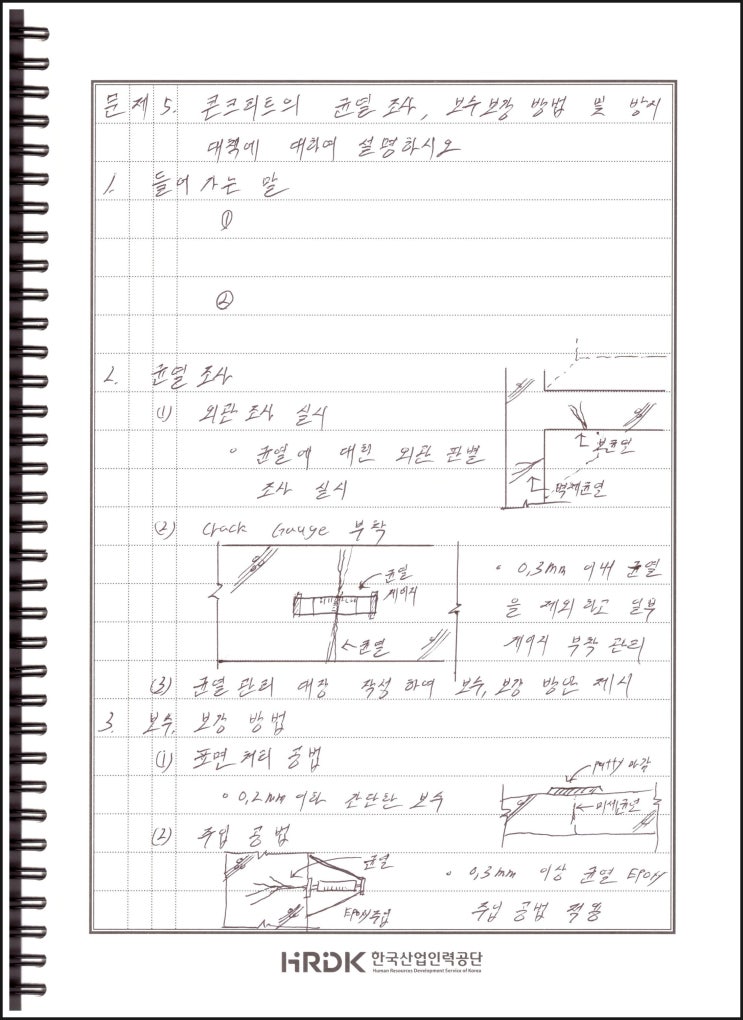 문제 5. 콘크리트의 균열 조사, 보수보강 방법 및 방지
대책에 대하여 설명하시오
1. 들어가는 말
①
②
2. 균열 조사
(1) 외관 조사 실시
◦ 균열에 대한 외관 판별
조사 실시
보균열
벽체균열
(2) Crack Gauge 부착
균열
게이지
←균열
◦ 0.3mm 이내 균열
을 제외하고 일부
게이지 부착 관리
(3) 균열 관리 대장 작성 하여 보수, 보강 방안 제시
3. 보수, 보강 방법
(1) 표면 처리 공법
◦ 0.2mm 이하 간단한 보수
putty 마감
←미세균열
(2) 주입 공법
균열
EPOXY주입
◦ 0.3mm 이상 균열 EPOXY
주입 공법 적용
HRDK 한국산업인력공단
Human Resources Development Service of Korea